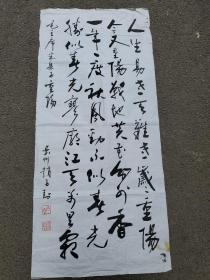 人生易老天难老岁岁重阳
今又重阳战地黄花分外香
一年一度秋风劲不似春光
胜似春光寥廓江天万里霜
毛主席采桑子重阳